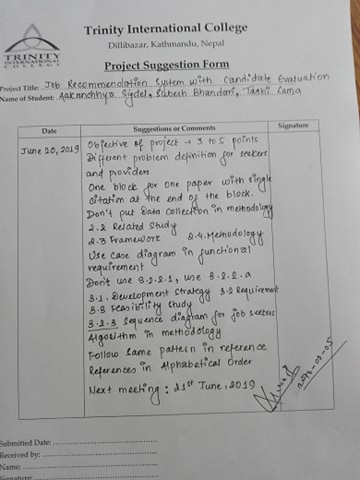 TRINITY
INTERNATIONAL
COLLEGE
Trinity International College
Dillibazar, Kathmandu, Nepal
Project Suggestion Form
Project Title: Job Recommendation System with Candidate Evaluation
Name of Student: Aakanchhya Sigdel, Subesh Bhandari, Tashi Lama
Date Suggestions or Comments Signature
June 20, 2019 Objective of project → 3 to 5 points
Different problem definition for seekers
and providers
One block for one paper with single
citation at the end of the block.
Don't put Data Collection in methodology
2.2 Related Study
2.3 Framework 2.4. Methodology
Use case diagram in functional
requirement
Don't use 3.2.2.1, use 3.2.2.a
3.1. Development Strategy 3.2 Requirement
3.3 Feasibility Study
3.2.3 Sequence diagram for job seekers
Algorithm in methodology
Follow same pattern in reference
References in Alphabetical Order
Next meeting : 21st June, 2019
Submitted Date: ..............................
Received by: ..............................
Name: ..............................
Signature: ..............................